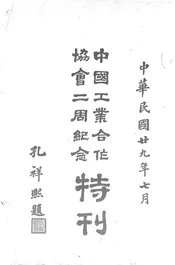 中華民國廿九年七月
中國工業合作
協會二周紀念
特刊
孔祥熙題